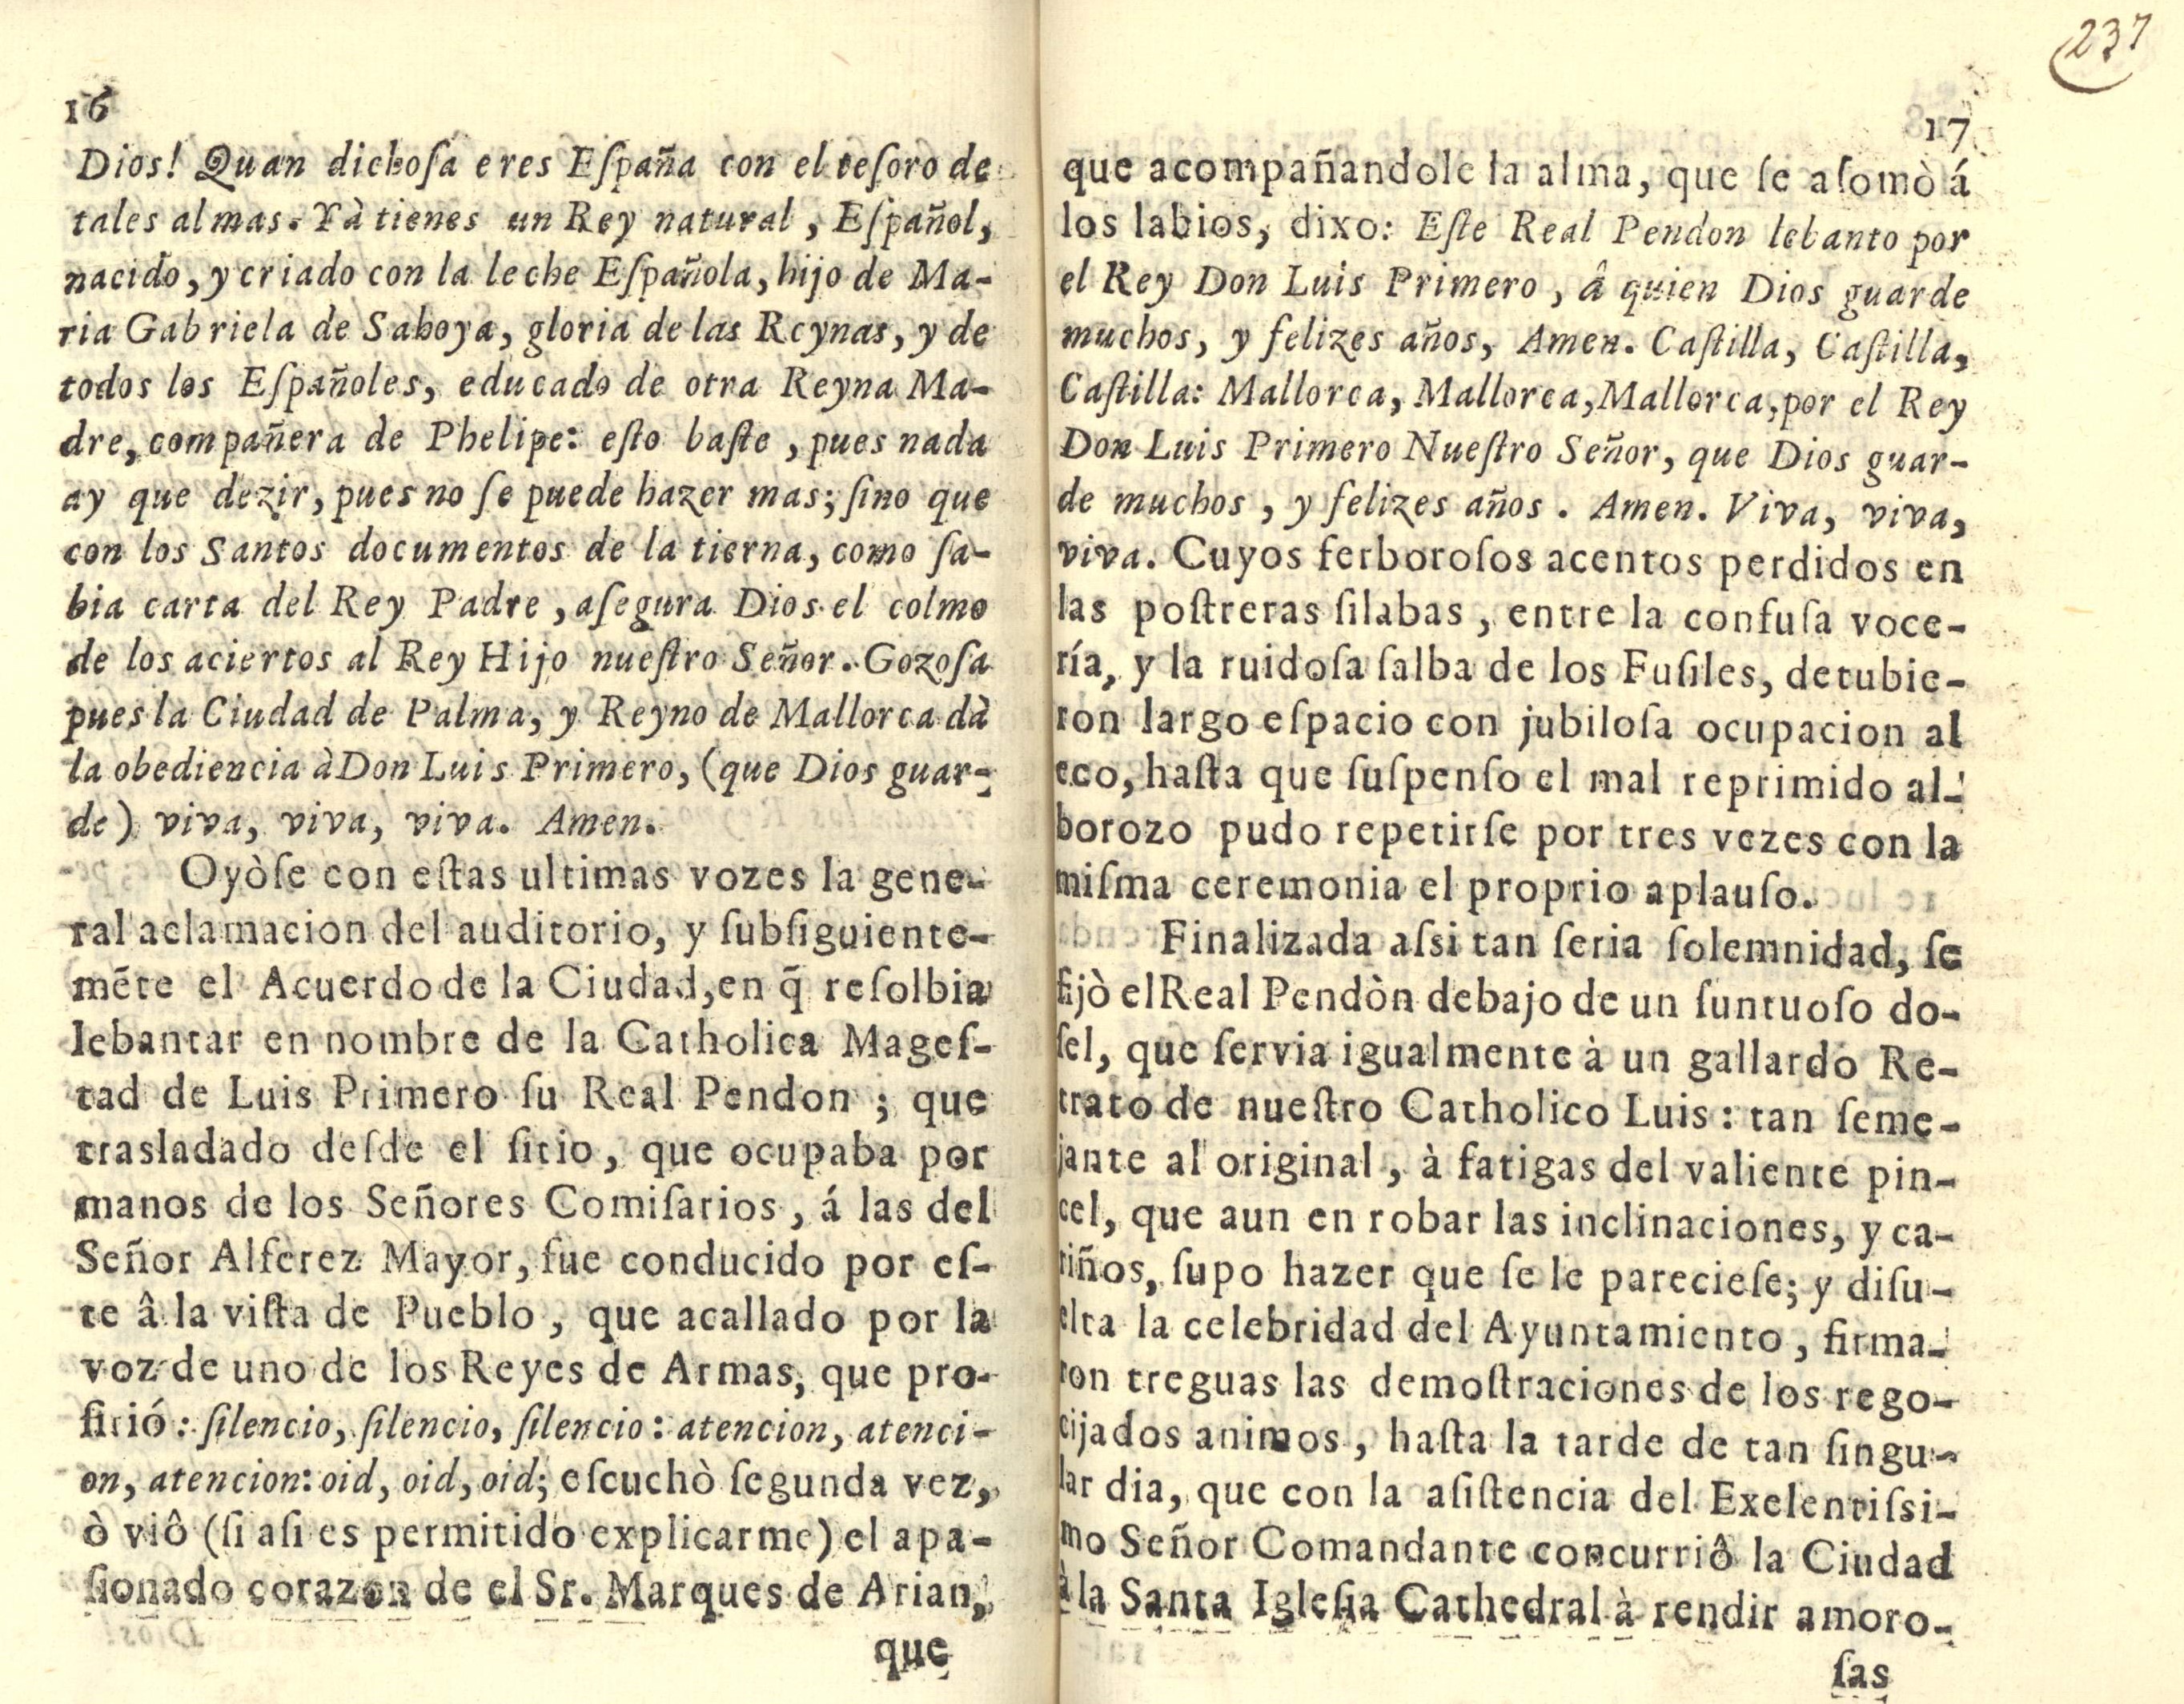 16
Dios! Quan dichoſa eres Eſpaña con el teſoro de
tales almas. Yà tienes un Rey natural, Eſpañol,
nacido, y criado con la leche Eſpañola, hijo de Ma-
ria Gabriela de Saboya, gloria de las Reynas, y de
todos los Eſpañoles, educado de otra Reyna Ma-
dre, compañera de Phelipe: eſto baſte, pues nada
ay que dezir, pues no ſe puede hazer mas; ſino que
con los Santos documentos de la tierna, como ſa-
bia carta del Rey Padre, aſegura Dios el colmo
de los aciertos al Rey Hijo nueſtro Señor. Gozoſa
pues la Ciudad de Palma, y Reyno de Mallorca dà
la obediencia à Don Luis Primero, (que Dios guar-
de) viva, viva, viva. Amen.
Oyòſe con eſtas ultimas vozes la gene-
ral aclamacion del auditorio, y ſubſiguiente-
mẽte el Acuerdo de la Ciudad, en q̃ reſolbia
lebantar en nombre de la Catholica Mageſ-
tad de Luis Primero ſu Real Pendon; que
trasladado deſde el ſitio, que ocupaba por
manos de los Señores Comiſarios, á las del
Señor Alferez Mayor, fue conducido por eſ-
te â la viſta de Pueblo, que acallado por la
voz de uno de los Reyes de Armas, que pro-
firió: ſilencio, ſilencio, ſilencio: atencion, atenci-
on, atencion: oid, oid, oid; eſcuchò ſegunda vez,
ò viô (ſi aſi es permitido explicarme) el apa-
ſionado corazon de el Sr. Marques de Arian,
que
237
17
que acompañandole la alma, que ſe aſomò á
los labios, dixo: Eſte Real Pendon lebanto por
el Rey Don Luis Primero, â quien Dios guarde
muchos, y felizes años, Amen. Caſtilla, Caſtilla,
Caſtilla: Mallorca, Mallorca, Mallorca, por el Rey
Don Luis Primero Nueſtro Señor, que Dios guar-
de muchos, y felizes años. Amen. Viva, viva,
viva. Cuyos ferboroſos acentos perdidos en
las poſtreras ſilabas, entre la confuſa voce-
ría, y la ruidoſa ſalba de los Fuſiles, detubie-
ron largo eſpacio con jubiloſa ocupacion al
eco, haſta que ſuſpenſo el mal reprimido al-
borozo pudo repetirſe por tres vezes con la
miſma ceremonia el proprio aplauſo.
Finalizada aſsi tan ſeria ſolemnidad, ſe
fijò el Real Pendòn debajo de un ſuntuoſo do-
ſel, que ſervia igualmente à un gallardo Re-
trato de nueſtro Catholico Luis: tan ſeme-
jante al original, à fatigas del valiente pin-
cel, que aun en robar las inclinaciones, y ca-
riños, ſupo hazer que ſe le parecieſe; y diſu-
elta la celebridad del Ayuntamiento, firma-
ron treguas las demoſtraciones de los rego-
cijados animos, haſta la tarde de tan ſingu-
lar dia, que con la aſiſtencia del Exelentiſsi-
mo Señor Comandante concurriô la Ciudad
à la Santa Igleſia Cathedral à rendir amoro-
ſas